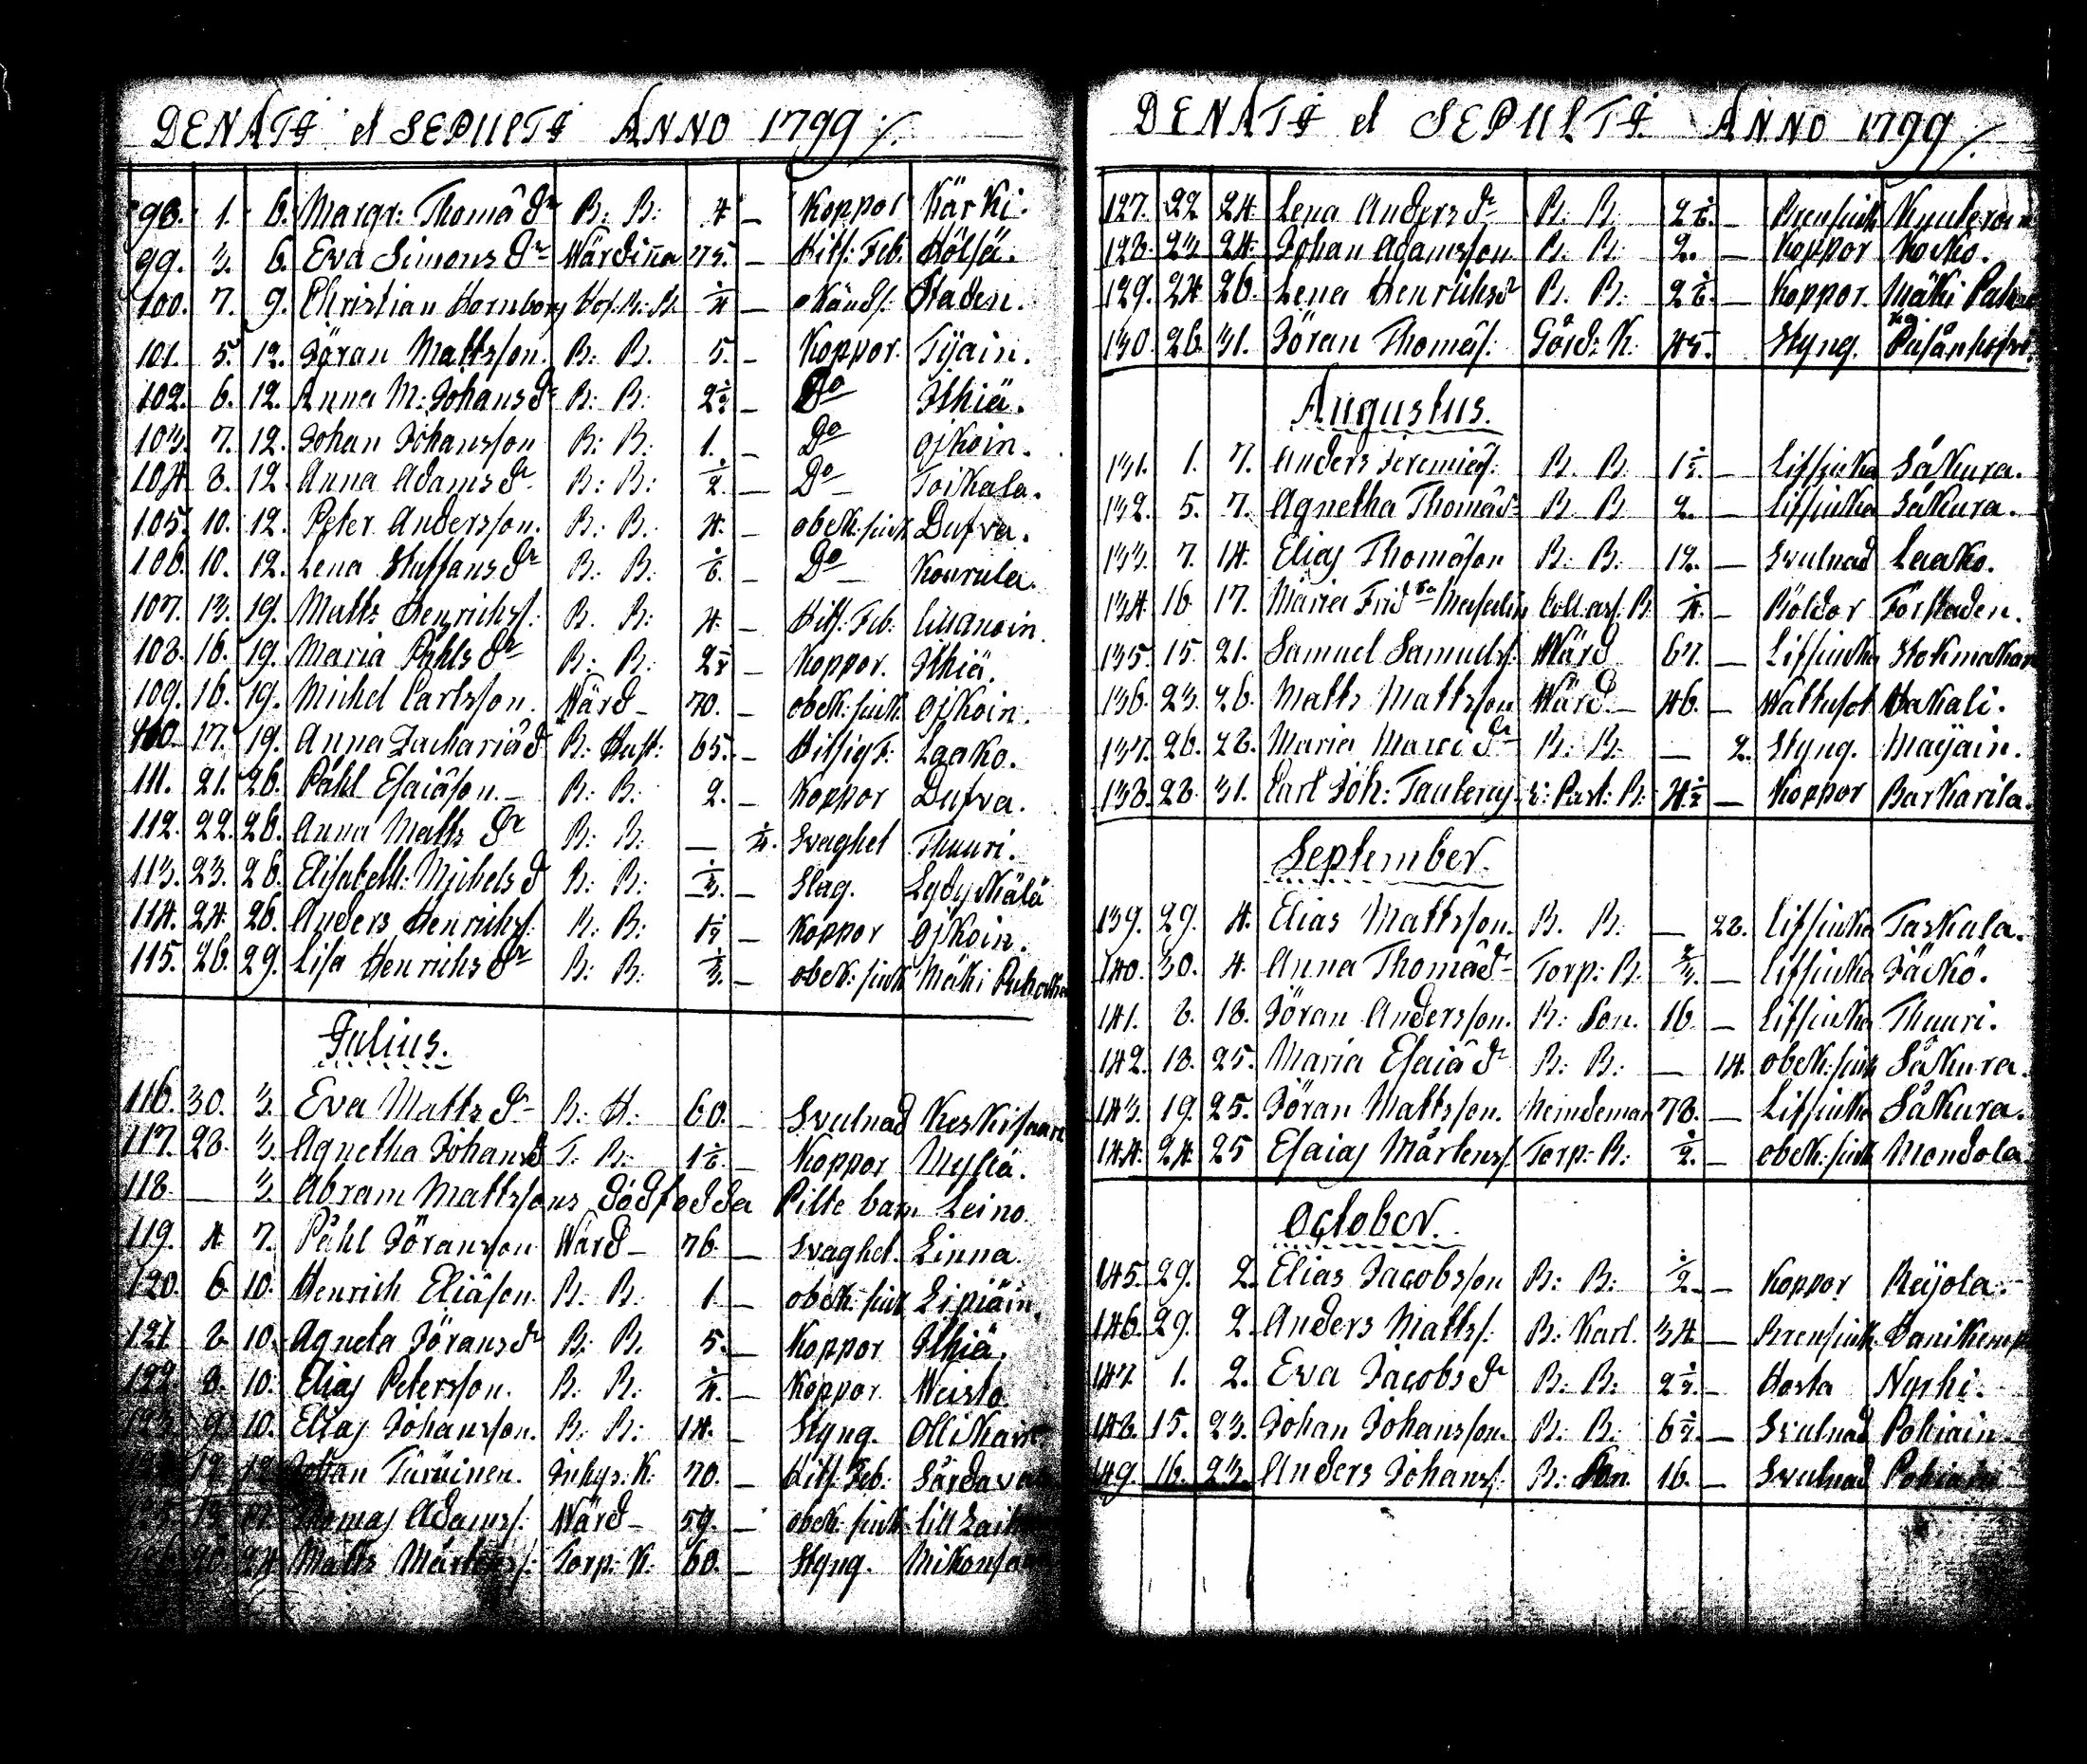 DENATI et SEPULTI ANNO 1799 ./.
98. 1. 6. Margr: Thomæ Dr B: B: 4 — Koppor Kärki.
99. 3. 6. Eva Simons Dr Wärdiña 75. — Hits: Feb. Hölsä.
100. 7. 9. Christian Hornborg Hof. R: B. 1/4 — okänds. Staden.
101. 5. 12. Jöran Mattsson. B: B. 5. — Koppor. Tijain.
102. 6. 12. Anna M: Johans Dr B: B: 2 1/2 — Do Ithiä.
103. 7. 12. Johan Johansson B: B: 1. — Do Oikoin.
104. 8. 12. Anna Adams Dr B: B: 1/2. — Do Toikala.
105. 10. 12. Peter Andersson. B: B. 4. — obek: siuk Dufva.
106. 10. 12. Lena Staffans Dr B: B: 1/6. — Do Kourula.
107. 13. 19. Matts Henrichs: B. B: 4. — Hits: Feb: Lillanoin.
108. 16. 19. Maria Påhls Dr B: B: 2 1/2 — Koppor. Ithiä.
109. 16. 19. Michel Carlsson. Wärd — 70. — obek: siuk. Oikoin.
110. 17. 19. Anna Zachariæ D B: Hust: 65. — Hitsig F: Laako.
111. 21. 26. Påhl Esaiæson. — B: B: 2. — Koppor Dufva.
112. 22. 26. Anna Matts Dr B: B: — 1/4. Svaghet Thuuri.
113. 23. 26. Elisabeth: Michels D B: B: 1/3. — Slag. Lydykälä
114. 24. 26. Anders Henrichs: B: B: 1 1/2 — Koppor Oikoin.
115. 26. 29. Lisa Henrichs Dr B: B: 1/3. — obek: siuk Mäki
Julius.
116. 30. 3. Eva Matts Dr — B: H: 60. — Svulnad Keskisaari
117. 28. 3. Agnetha Johans D T: B: 1 1/6. — Koppor Myllä.
118. — 3. Abram Mattssons dödfödda Pilte barn Leino.
119. 4 7. Påhl Jöransson Wärd — 76. — Svaghet. Linna.
120. 6 10. Henrich Eliæson. B. B: 1. — obek: siuk Lipiäin.
121 8 10. Agneta Jörans Dr B: B. 5. — Koppor Ithiä.
122. 8. 10. Elias Petersson. B. B: 1/4. — Koppor. Weisto.
123. 9. 10. Elias Johansson. B: B: 14. — Styng. Ollikain
Johan Turuinen. Inhys: K: 70. — Hits: Feb: Sårdava
Thomas Adams: Wärd — 59. — obek: siuk Lill
Matts Mårtens: Torp: K: 60. — Styng.
DENATI et SEPULTI ANNO 1799 ./.
127. 22 24 Lena Anders Dr B: B: 2 1/6. — Brensiuk
128. 23. 24. Johan Adamsson B: B: 2. — Koppor Kocko.
129. 24 26. Lena Henrichs Dr B. B: 2 1/6. — Koppor. Mäki
130. 26. 31. Jöran Thomæs: Gård: K: 45. — Styng.
Augustus.
131. 1. 7. Anders Jeremiæs: B. B: 1 1/2 — Lifsiuka Såkura.
132. 5. 7. Agnetha Thomæ Dr B: B 2. — Lifsiuka Såkura.
133. 7. 14. Elias Thomæson B: B. 12. — Svulnad Laako.
134. 16. 17. Maria Frid Masalin Coll. ass: B. 1/4. — Böldor Förstaden.
135. 15. 21. Samuel Samuels: Wärd 67. — Lifsiuka
136. 23. 26. Matts Mattsson Wärd — 46. — Wattusot Hakali.
137. 26. 28. Maria Marci Dr B: B: — 2. Styng. Maijain.
138. 28. 31. Carl Joh: B: 4 1/2 — Koppor Barkarila.
September.
139. 29. 4. Elias Mattsson. B. B. — 28. Lifsiuka Taskula.
140. 30. 4. Anna Thomæ Dr — Torp: B: 2/3. — Lifsiuka Jäckö.
141. 8. 18. Jöran Andersson. B: Son. 16. — Lifsiuka Thuuri.
142. 18. 25. Maria Esaiæ D B: B: — 14. obek: siuk Såkura.
143. 19. 25. Jöran Mattsson. 78. — Lifsiuka Såkura.
144. 24. 25 Esaias Mårtens: Torp: B: 1/2. — obek: siuk Mondola.
October.
145. 29. 2. Elias Jacobsson B: B: 1/2. — Koppor Reijola.
146. 29. 2. Anders Matts: B: Karl. 34 — Brensiuk.
147. 1. 2. Eva Jacobs Dr B: B: 2 1/2. — Hosta Nyrhi.
148. 15. 23. Johan Johansson. B: B: 6 1/2. — Svulnad Pohiain
149. 16. 23. Anders Johans: B: Son. 16. — Svulnad Pohiain